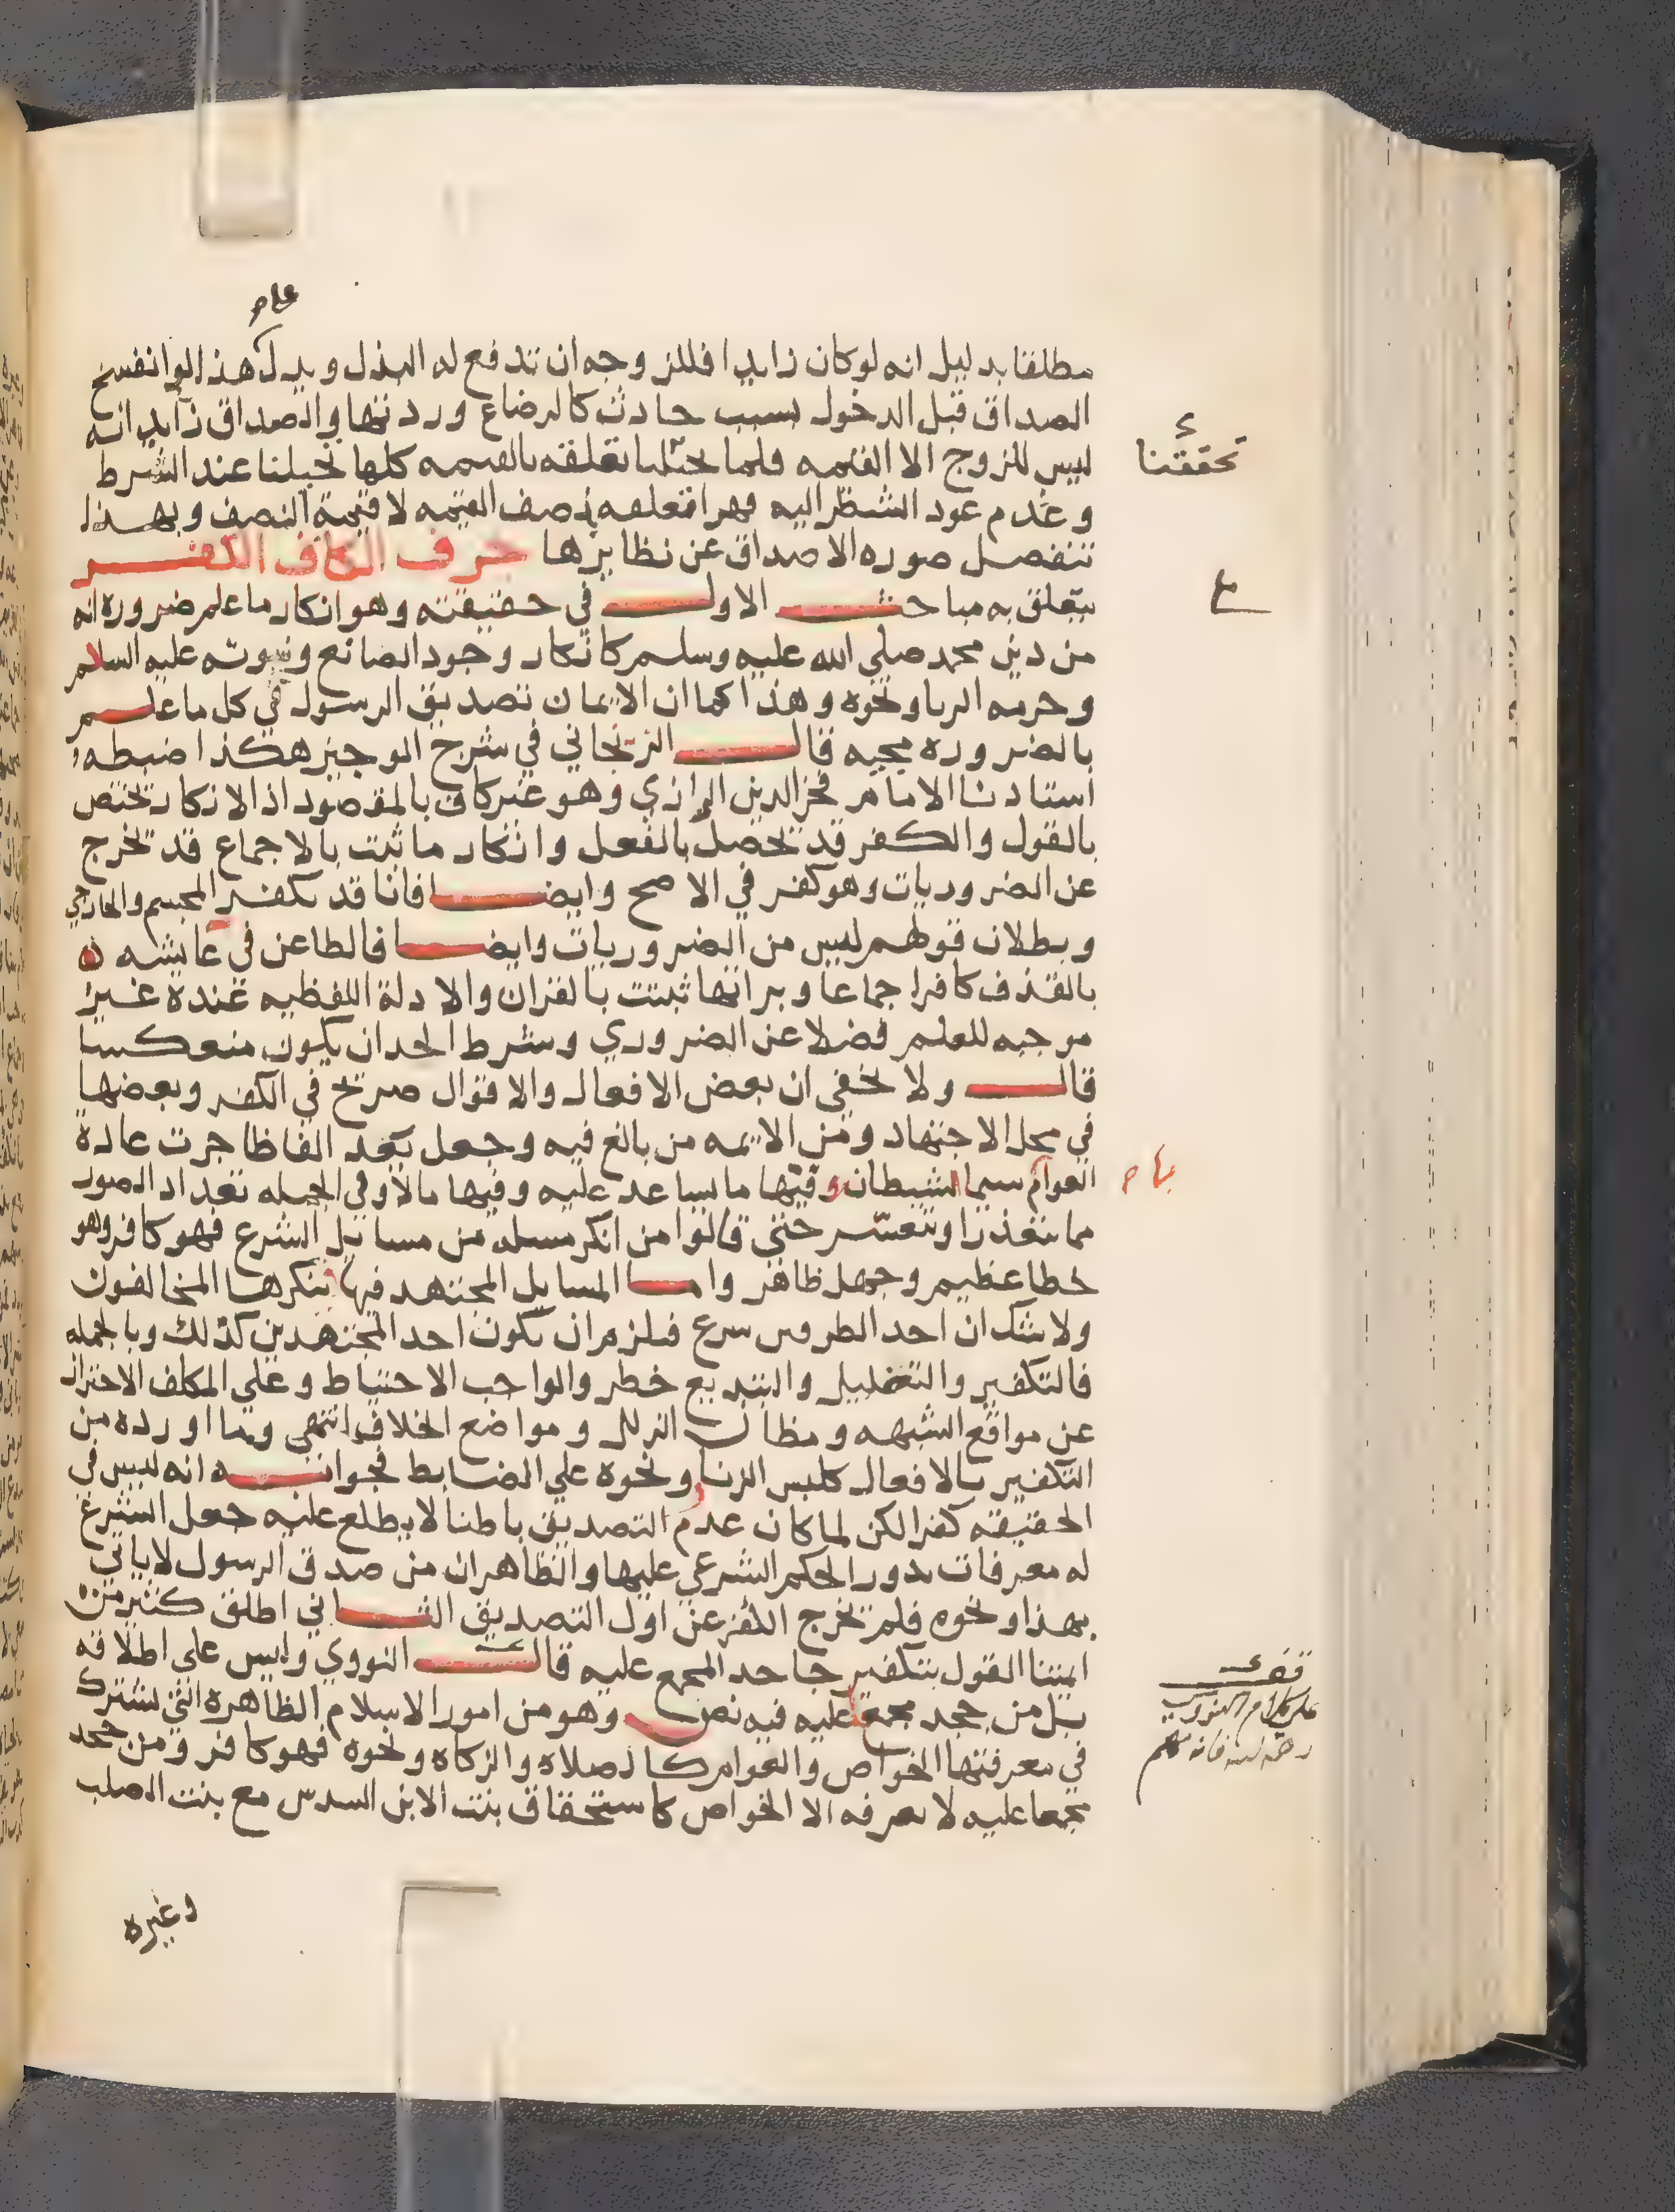 علي
مطلقا بدليل انه لو كان زايدا فللزوجه ان تدفع له البذل وبدل هذا لو انفسخ
الصداق قبل الدخول بسبب حادث كالرضاع وردتها والصداق زايد انه
ليس للزوج الا القيمه فلما تعلقه بالقيمه كلها تخيلنا عند الشرط
وعدم عود الشطر اليه قهرا تعلقه بنصف القيمه لا قيمة النصف وبهذا
تنفصل صوره الاصداق عن نظايرها حرف الكاف الكفر
يتعلق به مباحث الاول في حقيقته وهو انكار ما علم ضروره انه
من دين محمد صلى الله عليه وسلم كانكار وجود الصانع ونبوته عليه السلام
وحرمه الربا ونحوه وهذا كما ان الايمان تصديق الرسول في كل ما علم
بالضروره مجيه قال الزنجاني في شرح الوجيز هكذا ضبطه
استاذنا الامام فخر الدين الرازي وهو غير كاف بالمقصود اذ الانكار تختص
بالقول والكفر قد تحصل بالفعل وانكار ما ثبت بالاجماع قد تخرج
عن الضروريات وهو كفر في الاصح وايضا فانا قد نكفر المجسم والخارجي
وبطلان قولهم ليس من الضروريات وايضا فالطاعن في عايشه
بالقذف كافر اجماعا وبراتها ثبتت بالقران والادلة اللفظيه عنده غير
موجبه للعلم فضلا عن الضروري وشرط الحد ان يكون منعكسا
قال ولا يخفي ان بعض الافعال والاقوال صريح في الكفر وبعضها
في محل الاجتهاد ومن الايمه من بالغ فيه وجعل يعد الفاظا جرت عادة
العوام سيما الشيطان وفيها ما يساعد عليه وفيها ما لا وفي الجمله تعداد الصور
مما يتعذر او يتعسر حتي قالوا من انكر مسله من مسايل الشرع فهو كافر وهو
خطا عظيم وجهل ظاهر واما المسايل المجتهد فيها ينكرها المخالفون
ولا شك ان احد الطرفين شرع فيلزم ان يكون احد المجتهدين كذلك وبالجمله
فالتكفير والتضليل والتبديع خطر والواجب الاحتياط وعلي المكلف الاحتراز
عن مواقع الشبهه ومظان الزلل ومواضع الخلاف انتهي وما اورده من
التكفير بالافعال كلبس الزنار ونحوه علي الضابط فجوابه انه ليس في
الحقيقه كفرا لكن لما كان عدم التصديق باطنا لا يطلع عليه جعل الشرع
له معرفات يدور الحكم الشرعي عليها والظاهر ان من صدق الرسول لا ياتي
بهذا ونحوه فلم تخرج الكفر عن اول التصديق الثاني اطلق كثير من
ايمتنا القول بتكفير جاحد المجمع عليه قال النووي وليس على اطلاقه
بل من جحد مجمعا عليه فيه نص وهو من امور الاسلام الظاهره التي يشترك
في معرفتها الخواص والعوام كالصلاه والزكاه ونحوه فهو كافر ومن جحد
مجمعا عليه لا يعرفه الا الخواص كاستحقاق بنت الابن السدس مع بنت الصلب
وغيره
تحققنا
قف
على كلام النووي
رحمه الله فانه مهم